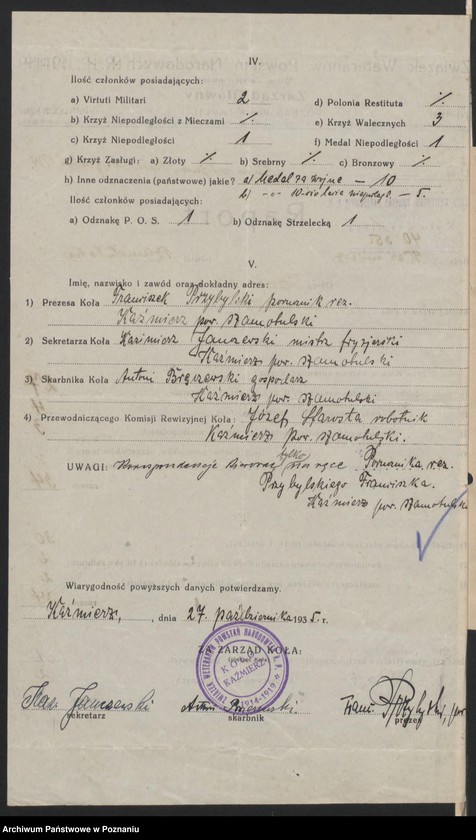 IV.
Ilość członków posiadających:
a) Virtuti Militari 2 d) Polonia Restituta ٪
b) Krzyż Niepodległości z Mieczami ٪ e) Krzyż Walecznych 3
c) Krzyż Niepodległości 1 f) Medal Niepodległości 1
g) Krzyż Zasługi: a) Złoty ٪ b) Srebrny ٪ c) Bronzowy ٪
h) Inne odznaczenia (państwowe) jakie? a) Medal za wojnę — 10
b) -„- 10-cio lecia niepodległ. — 5.
Ilość członków posiadających:
a) Odznakę P. O. S. 1 b) Odznakę Strzelecką 1
V.
Imię, nazwisko i zawód oraz dokładny adres:
1) Prezesa Koła Franciszek Przybylski porucznik rez.
Kaźmierz pow. szamotulski
2) Sekretarza Koła Kazimierz Janczewski mistrz fryzjerski
Kaźmierz pow. szamotulski
3) Skarbnika Koła Antoni gospodarz
Kaźmierz pow. szamotulski
4) Przewodniczącego Komisji Rewizyjnej Koła: Józef Starosta robotnik
Kaźmierz pow. szamotulski.
UWAGI: Korespondencję kierować tylko na ręce Porucznika rez.
Przybylskiego Franciszka.
Kaźmierz pow. szamotulski
Wiarygodność powyższych danych potwierdzamy.
Kaźmierz, dnia 27 października 1935. r.
ZA ZARZĄD KOŁA:
ZWIĄZEK WETERANÓW POWSTAŃ NARODOWYCH R. P.
KOŁO
KAŹMIERZ
1914-1919
Janczewski
sekretarz
Antoni
skarbnik
Franc. Przybylski, por.
prezes
Archiwum Państwowe w Poznaniu